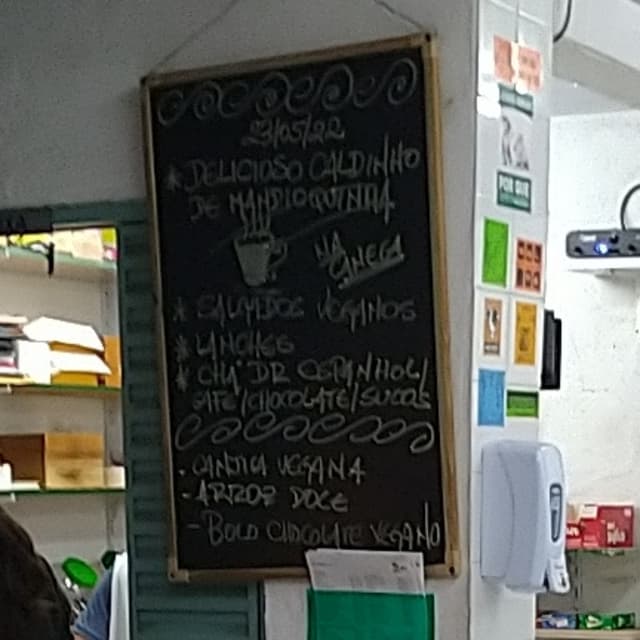 23/05/22
* DELICIOSO CALDINHO
DE MANDIOQUINHA
NA
CANECA
* SALGADOS VEGANOS
* LANCHES
* CHÁ DR ESPANHOL/
MATE/CHOCOLATE/SUCOS
- CANJICA VEGANA
- ARROZ DOCE
- BOLO CHOCOLATE VEGANO